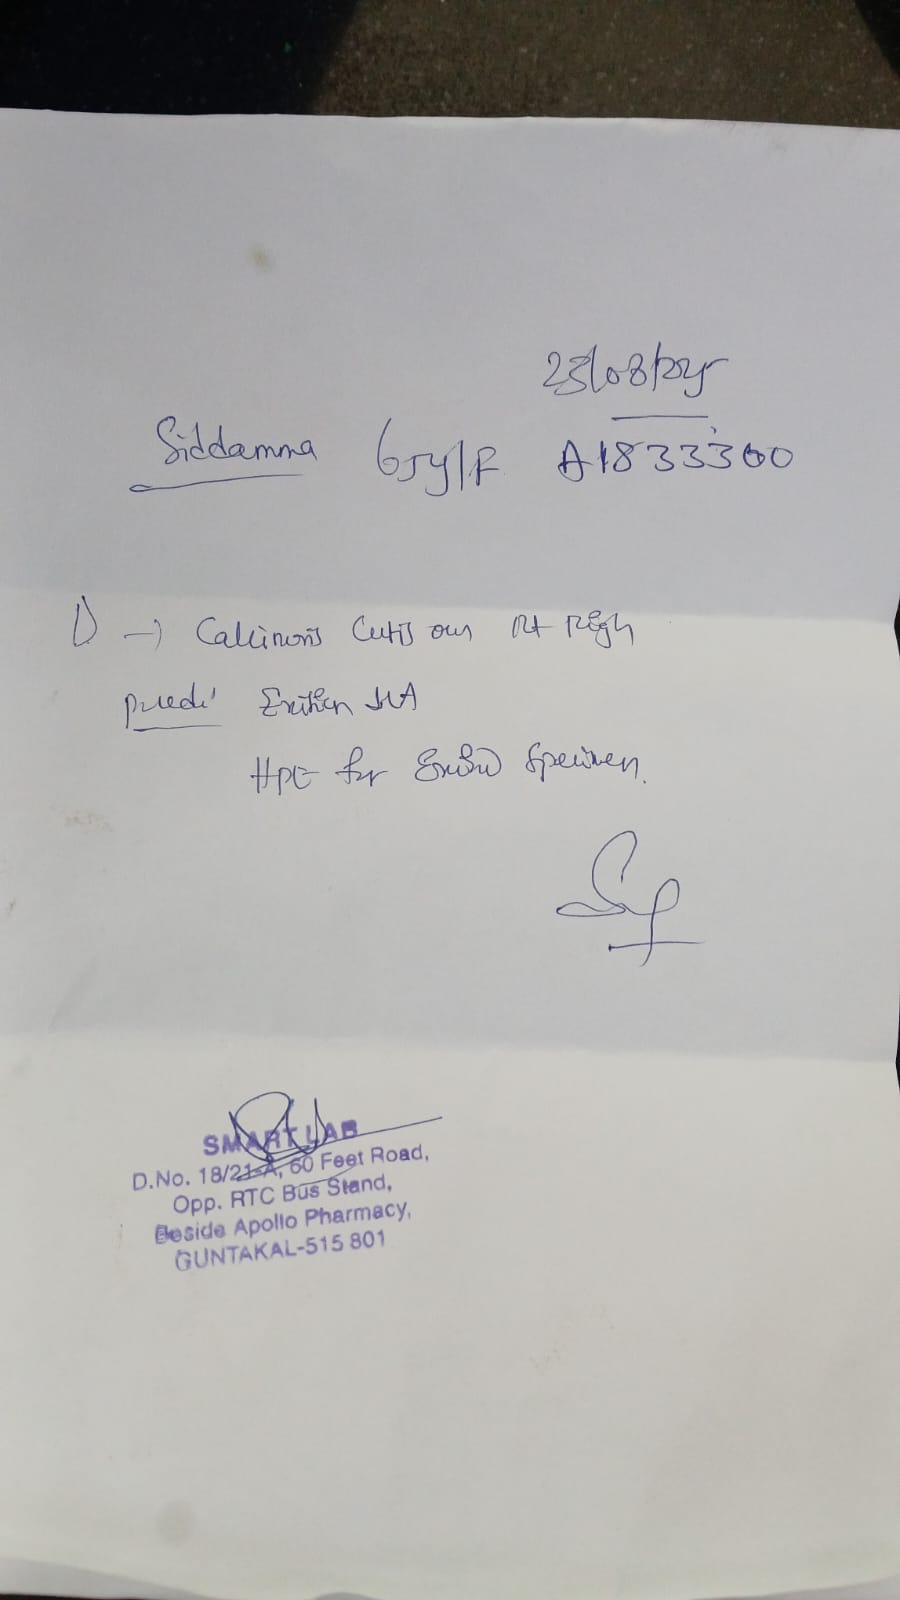 23/08/2025
Siddamma 65y/F A1833300
D → Calcinosis Cutis over Rt thigh
Proced: Excision ↓ LA
HPE for Excised Specimen.
SMART LAB
D.No. 18/21-A, 60 Feet Road,
Opp. RTC Bus Stand,
Beside Apollo Pharmacy,
GUNTAKAL-515 801